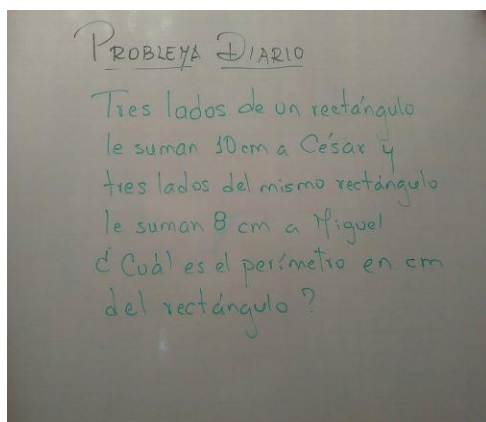 PROBLEMA DIARIO
Tres lados de un rectángulo
le suman 10 cm a César y
tres lados del mismo rectángulo
le suman 8 cm a Miguel
¿Cuál es el perímetro en cm
del rectángulo?